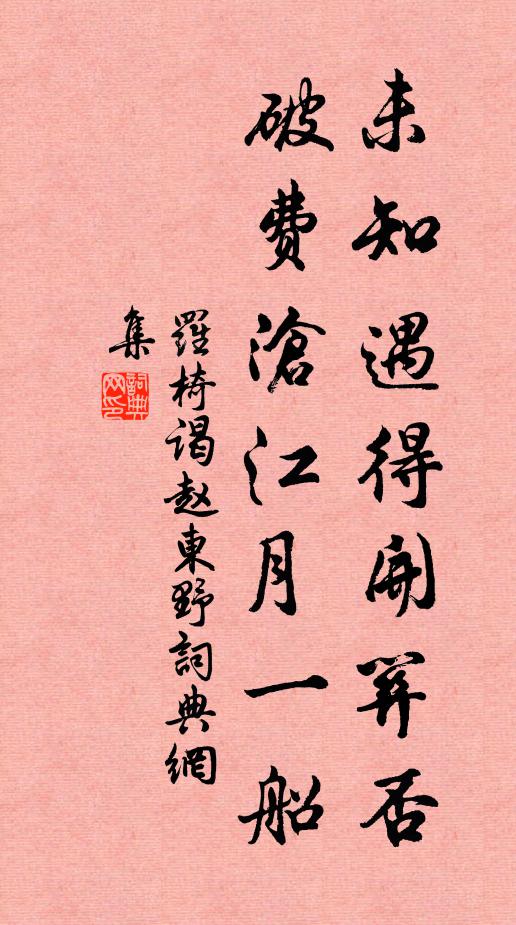 未知遇得開笄否
破費滄江月一船
羅椅謁趙東野詞典網
集
詞典網印